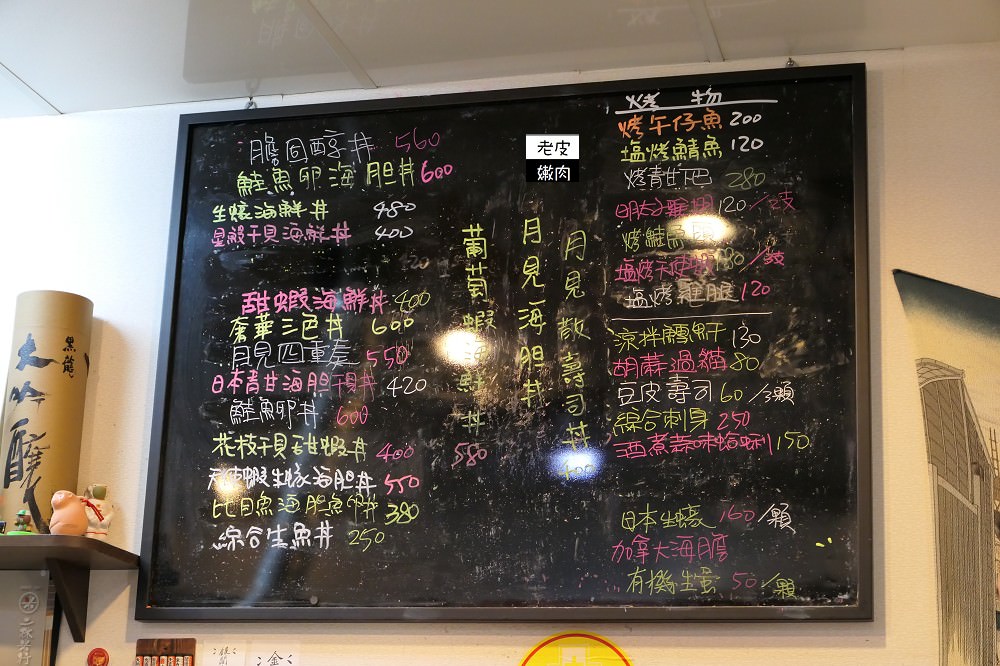 膽固醇丼 560
鮭魚卵海胆丼 600
生蠔海鮮丼 480
干貝海鮮丼 400
甜蝦海鮮丼 400
奢華三色丼 600
月見四重奏 550
日本青甘海胆干貝丼 420
鮭魚卵丼 600
花枝干貝甜蝦丼 400
生蠔海胆丼 550
比目魚海胆魚卵丼 380
綜合生魚丼 250
葡萄蝦海鮮丼 580
月見海胆丼
月見散壽司丼 400
老皮
嫩肉
烤物
烤午仔魚 200
塩烤鯖魚 120
烤青甘下巴 280
明太子雞翅 120/2支
烤鮭魚
塩烤天使蝦
塩烤雞腿 120
涼拌鱈魚干 130
胡蔴過貓 80
豆皮壽司 60/3顆
綜合刺身 250
酒煮蒜味蛤蜊 150
日本生蠔 160/顆
加拿大海膽
有機生蛋 50/顆
大吟釀
黑熊
金